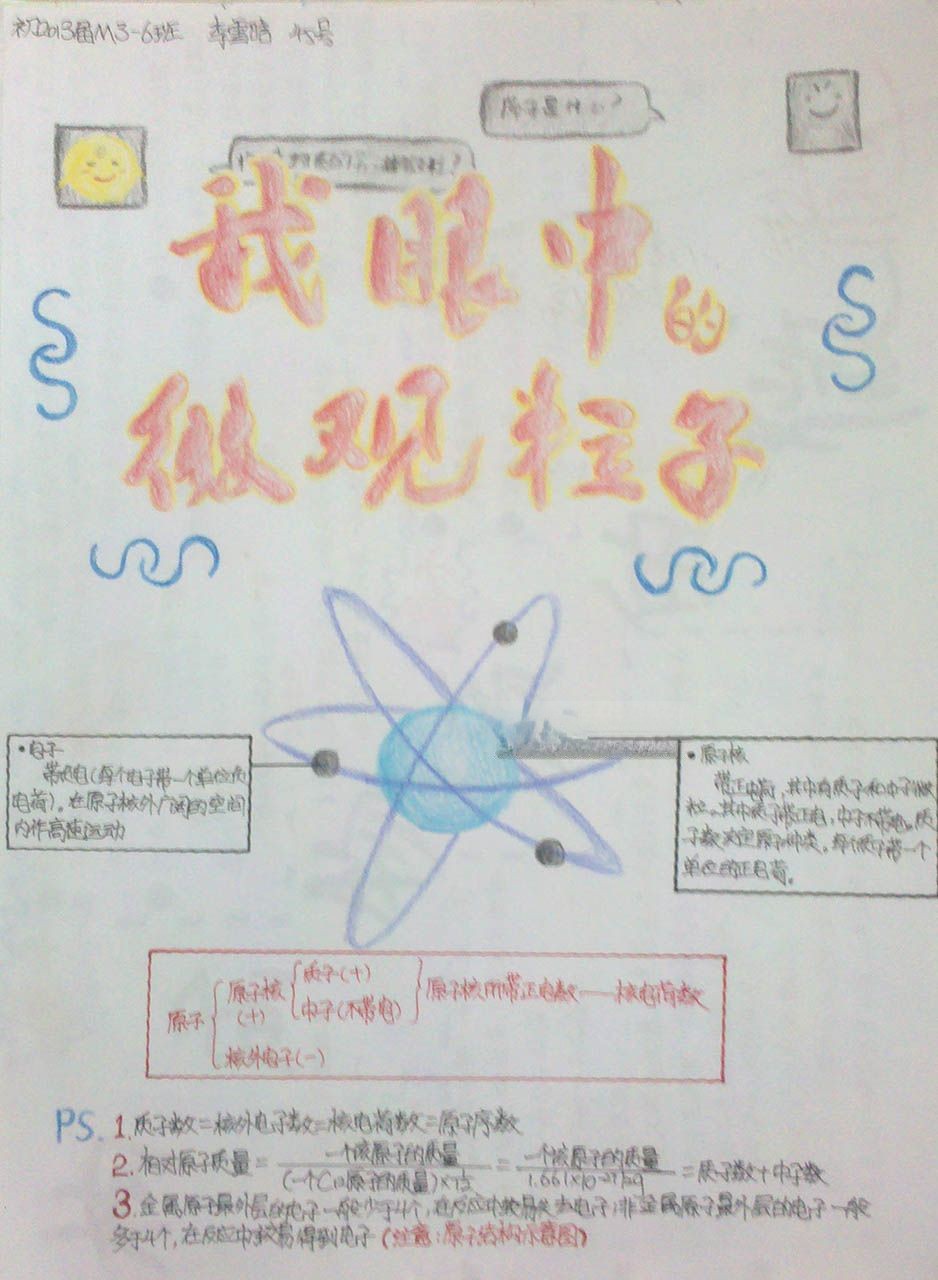 初2013届M3-6班 李雪晴 45号
原子是什么？
我眼中的
微观粒子
·电子
带负电(每个电子带一个单位负
电荷)。在原子核外广阔的空间
内作高速运动
·原子核
带正电荷，其中有质子和中子微
粒。其中质子带正电，中子不带电。质
子数决定原子种类，每个质子带一个
单位的正电荷。
原子
原子核
(+)
质子(+)
中子(不带电)
原子核所带正电数——核电荷数
核外电子(-)
PS. 1.质子数=核外电子数=核电荷数=原子序数
2.相对原子质量= 一个该原子的质量/(一个C12原子的质量)×1/12 = 一个该原子的质量/1.661×10-27kg =质子数+中子数
3 金属原子最外层的电子一般少于4个，在反应中较易失去电子；非金属原子最外层的电子一般
多于4个，在反应中较易得到电子(注意：原子结构示意图)